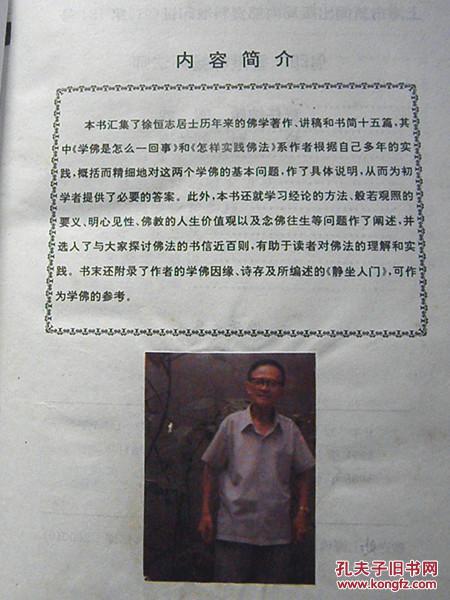 内容简介
本书汇集了徐恒志居士历年来的佛学著作、讲稿和书简十五篇,其
中《学佛是怎么一回事》和《怎样实践佛法》系作者根据自己多年的实
践,概括而精细地对这两个学佛的基本问题,作了具体说明,从而为初
学者提供了必要的答案。此外,本书还就学习经论的方法、般若观照的
要义、明心见性、佛教的人生价值观以及念佛往生等问题作了阐述,并
选人了与大家探讨佛法的书信近百则,有助于读者对佛法的理解和实
践。书末还附录了作者的学佛因缘、诗存及所编述的《静坐人门》,可作
为学佛的参考。
孔夫子旧书网
www.kongfz.com